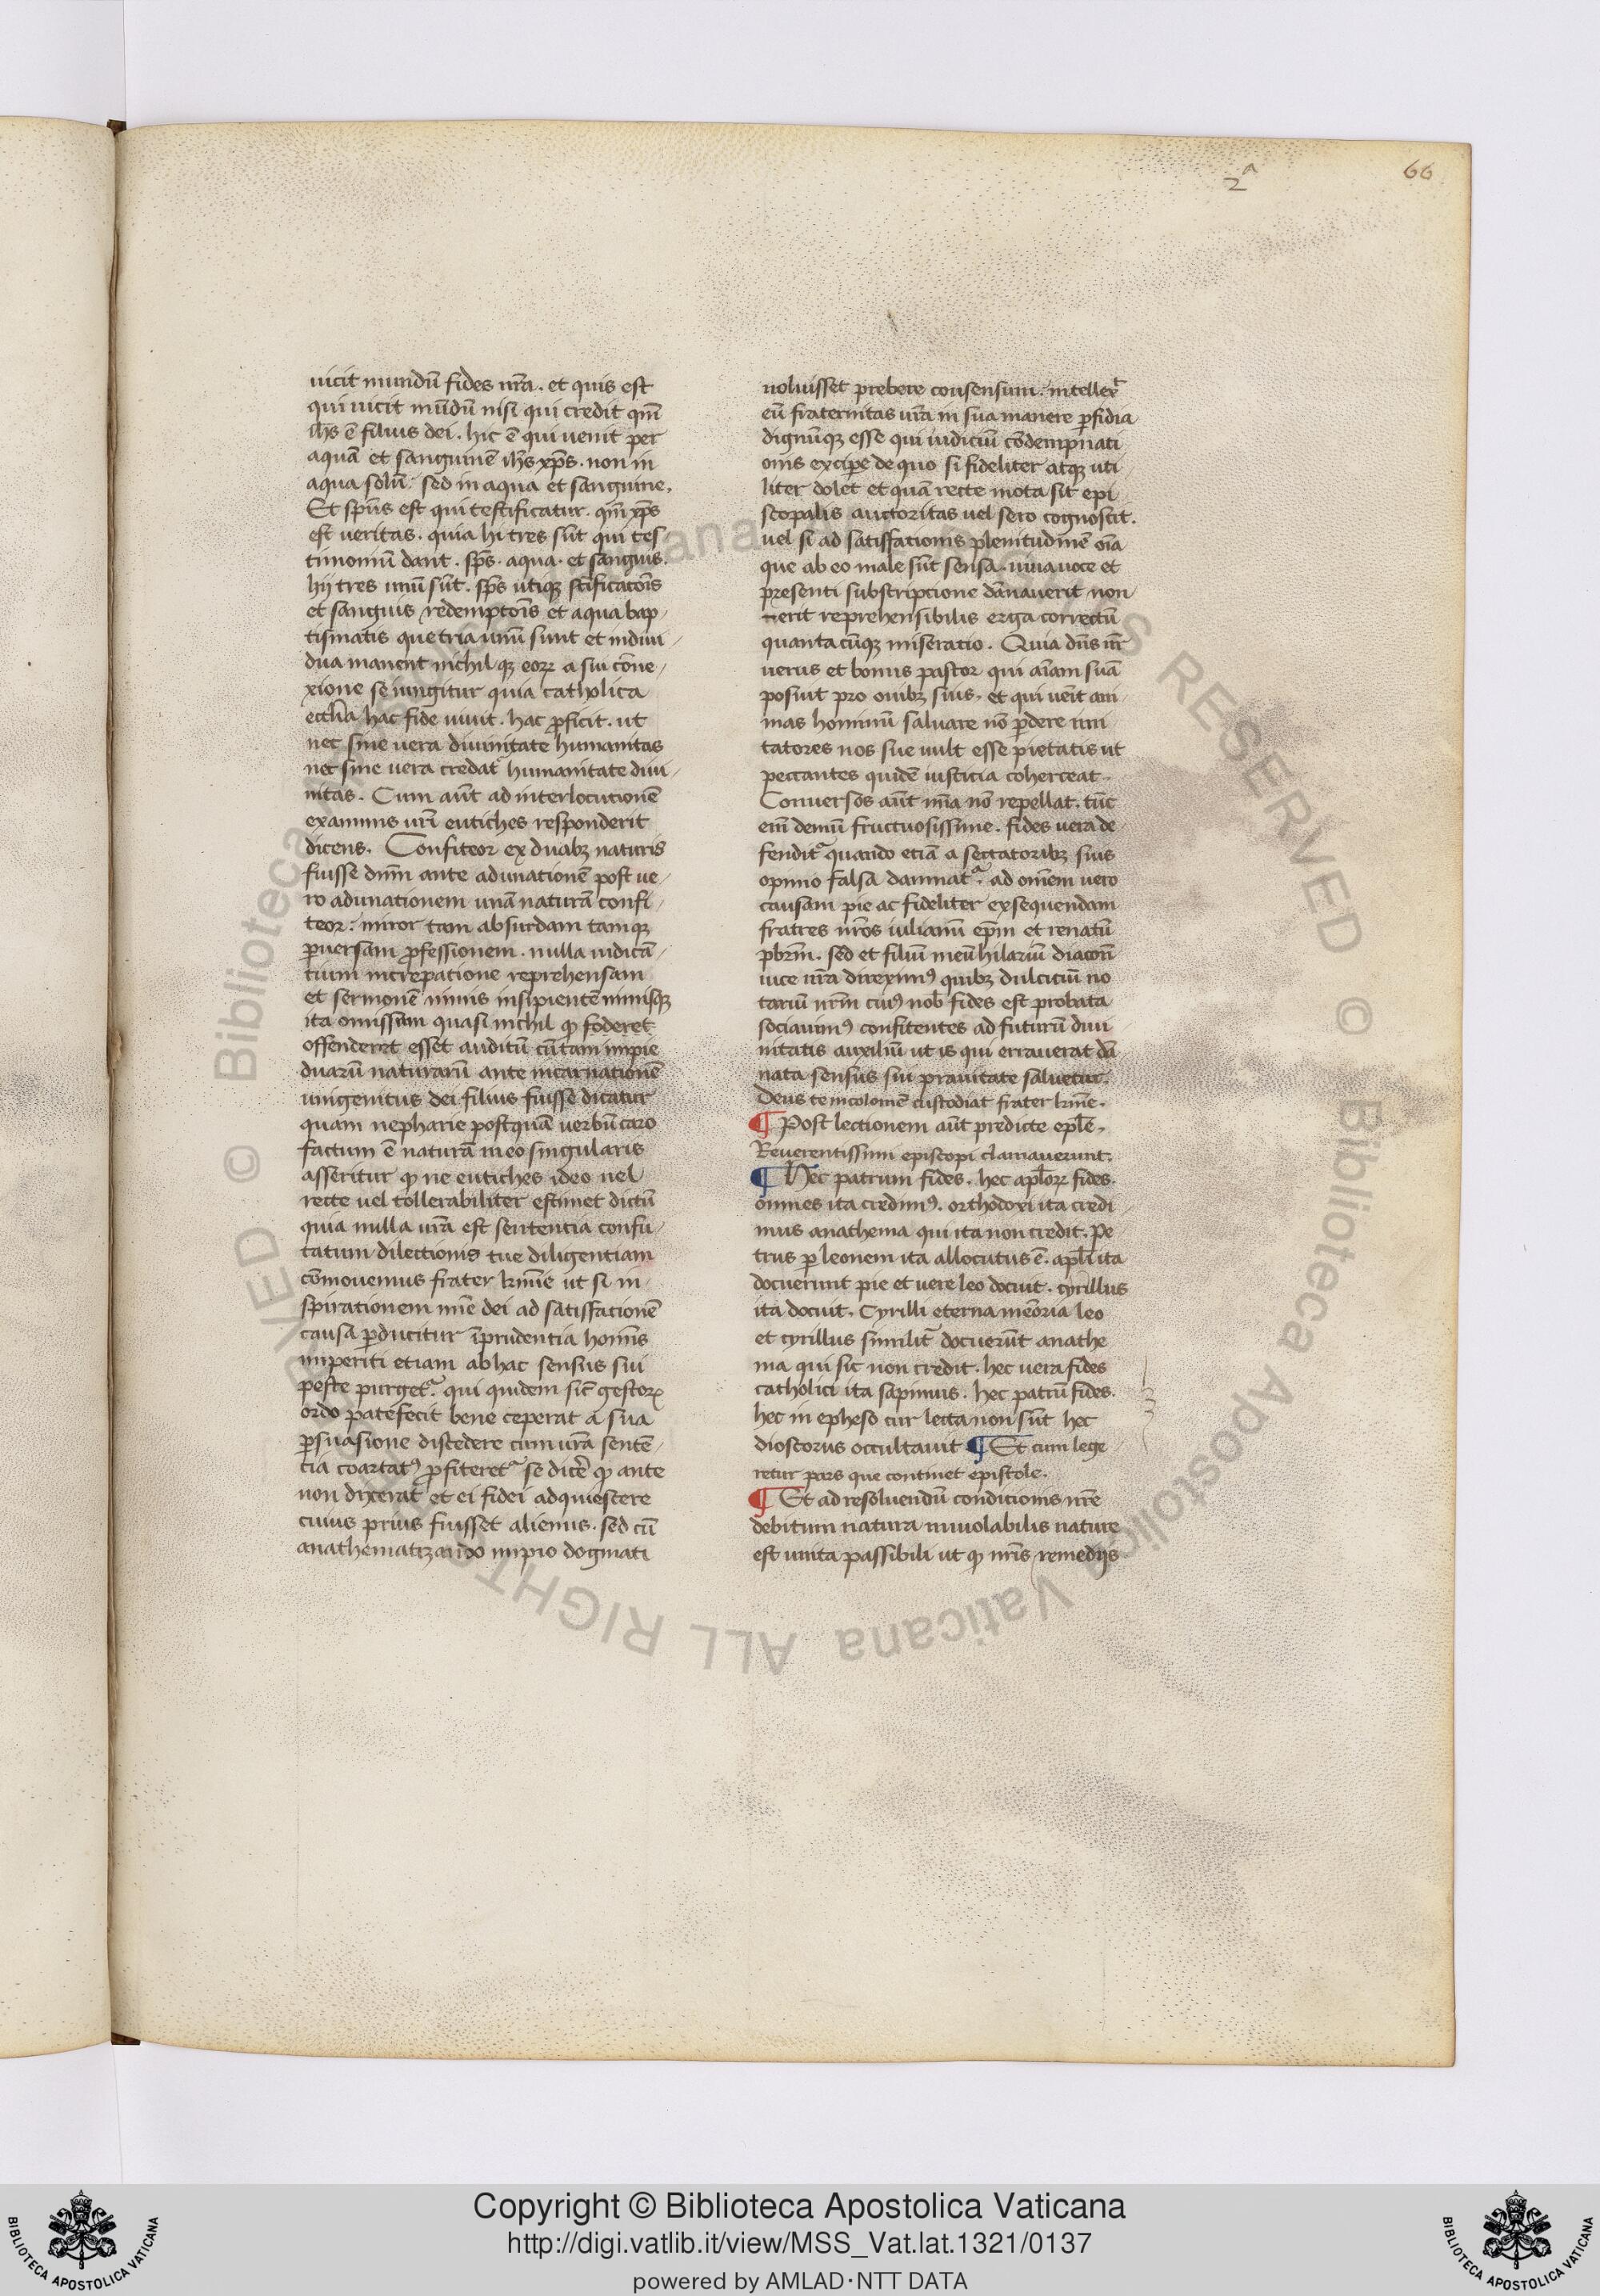 2ᵃ
66
uicit mundū fides nr̄a. et quis est
qui uicit mūdū nisi qui credit qm̄
ih̄s ē filius dei. hic ē qui uenit per
aquā et sanguinē ih̄s xp̄s. non in
aqua solū. sed in aqua et sanguine.
Et sp̄us est qui testificatur. qm̄ xp̄s
est ueritas. quia hi tres sūt qui tes
timoniū dant. sp̄s. aqua. et sanguis.
hij tres unū sūt. sp̄s utiqꝫ sc̄ificatōis
et sanguis redemptōis et aqua bap
tismatis que tria unū sunt et indiui
dua manent nichilqꝫ eoꝝ a sui cōne
xione seiungitur quia catholica
ecclīa hac fide uiuit. hac ꝓficit. ut
nec sine uera diuinitate humanitas
nec sine uera credat᷑ humanitate diui
nitas. Cum aūt ad interlocutionē
examinis ur̄i eutiches responderit
dicens. Confiteor ex duabꝫ naturis
fuisse dnm̄ ante adunationē post ue
ro adunationem unā naturā confi
teor. miror tam absurdam tamqꝫ
ꝑuersam ꝓfessionem. nulla iudicā
tium increpatione reprehensam
et sermonē nimis insipientē nimisqꝫ
ita omissum quasi nichil ꝙ foderet
offenderet esset auditū cū tam impie
duarū naturarū ante incarnationē
unigenitus dei filius fuisse dicatur
quam nepharie postquā uerbū caro
factum ē naturā in eo singularis
asseritur ꝙ ne eutiches ideo uel
recte uel tollerabiliter estimet dictū
quia nulla ur̄a est sententia confu
tatum dilectionis tue diligentiam
cōmouemus frater kmē ut si in
spirationem mīe dei ad satisfactionē
causa ꝑducitur īprudentia homīs
imperiti etiam ab hac sensus sui
peste purget᷑. qui quidem sic̄ gestoꝝ
ordo patefecit bene ceperat a sua
ꝑsuasione discedere cum ur̄a sentē
tia coartatꝰ ꝓfiteret᷑ se dicē ꝙ ante
non dixerat et ei fidei adquiescere
cuius prius fuisset alienus. sed cū
anathematizando impio dogmati
uoluisset prebere consensum. intellex᷑
eū fraternitas ur̄a in sua manere ꝑfidia
dignūqꝫ esse qui iudiciū cōdempnati
onis exciꝑe de quo si fideliter atqꝫ uti
liter dolet et quā recte mota sit epi
scopalis auctoritas uel sero cognoscit.
uel si ad satisfationis plenitudinē oīa
que ab eo male sūt sensa. uiua uoce et
presenti subscripcione dānauerit non
erit reprehensibilis erga correctū
quantacūqꝫ miseratio. Quia dn̄s nr̄
uerus et bonus pastor qui aīam suā
posuit pro ouibꝫ suis. et qui uēit ani
mas hominū saluare nō ꝑdere imi
tatores nos sue uult esse pietatis ut
peccantes quidē iusticia coherceat.
Conuersos aūt mīa nō repellat. tūc
eīn demū fructuosissime. fides uera de
fendit᷑ quando etiā a sectatoribꝫ suis
opinio falsa damnat᷑. ad omēm uero
causam pie ac fideliter exsequendam
fratres nr̄os iulianū ep̄m et renatū
pbr̄m. sed et filiū meū hilariū diacon̄
uice nr̄a direximꝰ quibꝫ dulcitiū no
tariū nrm̄ cuiꝰ nob̄ fides est probata
sociauimꝰ confitentes ad futurū diui
nitatis auxiliū ut is qui errauerat dā
nata sensus sui prauitate saluetur.
Deus te incolomē custodiat frater kme.
¶ Post lectionem aūt predicte eplē.
Reuerentissimi episcopi clamauerunt.
¶ Hec patrum fides. hec apl̄oꝝ fides.
omnes ita credimꝰ. orthodoxi ita credi
mus anathema qui ita non credit. Pe
trus ꝑ leonem ita allocutus ē. apl̄i ita
docuerunt pie et uere leo docuit. cyrillus
ita docuit. Cyrilli eterna memoria leo
et cyrillus similit᷑ docuerūt anathe
ma qui sic non credit. hec uera fides
catholici ita sapimus. hec patrū fides.
hec in epheso cur lecta non sūt hec
dioscorus occultauit ¶ Et cum lege
retur pars que continet epistole.
¶ Et ad resoluendū conditionis nr̄e
debitum natura inuiolabilis nature
est unita passibili ut ꝙ nr̄is remedijs
Copyright © Biblioteca Apostolica Vaticana
http://digi.vatlib.it/view/MSS_Vat.lat.1321/0137
powered by AMLAD·NTT DATA
BIBLIOTECA APOSTOLICA VATICANA
BIBLIOTECA APOSTOLICA VATICANA